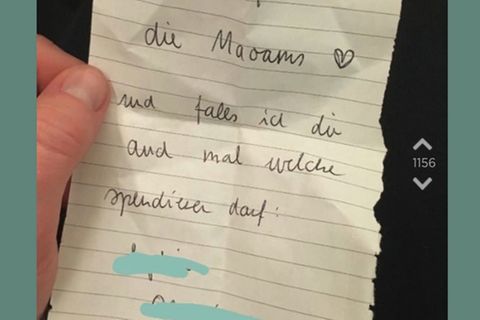 die Maoams ♡
und falls ich dir
auch mal welche
spendieren darf:
1156